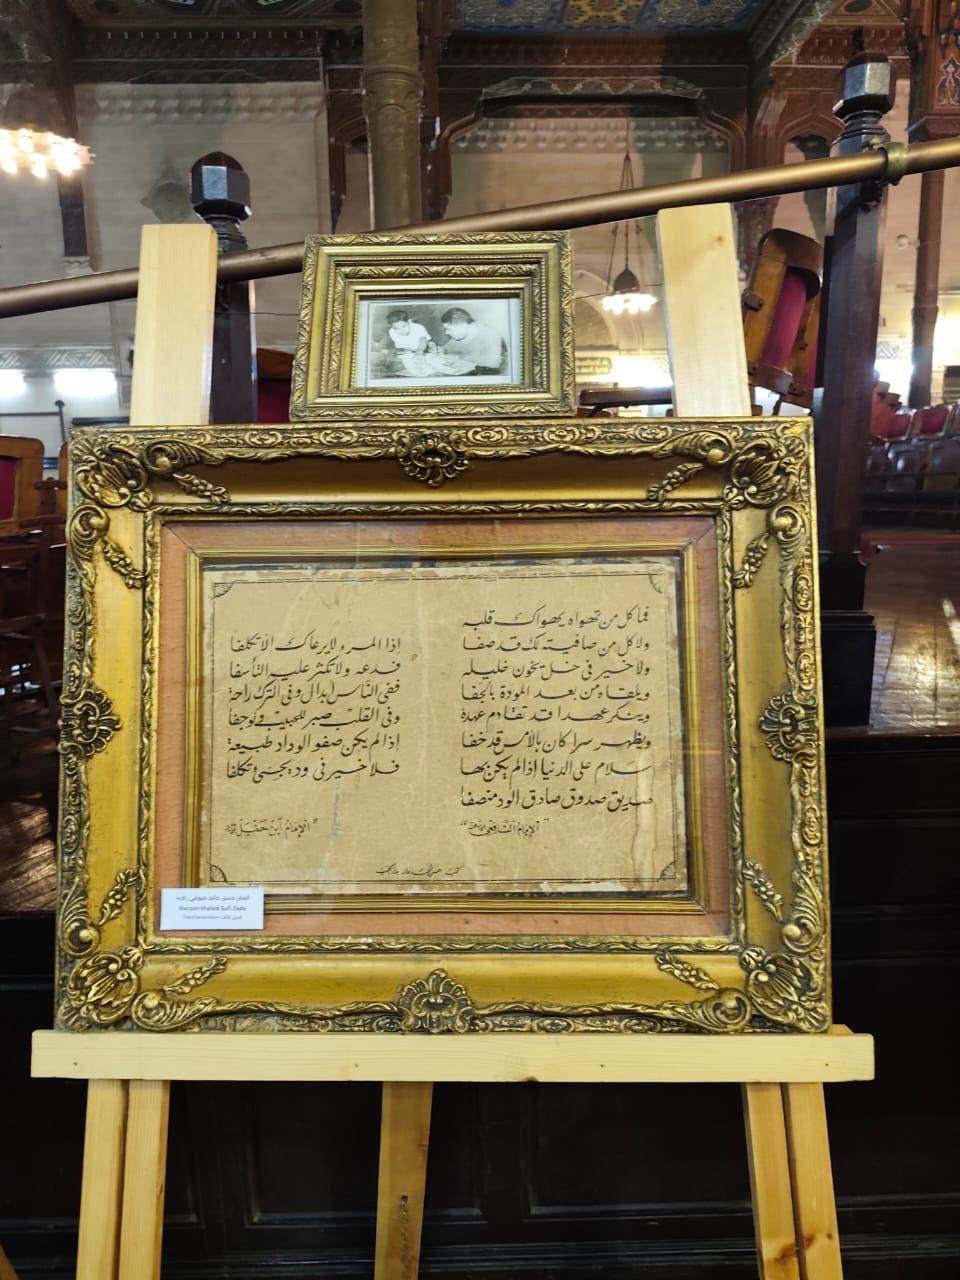 فما كل من تهواه يهواك قلبه
ولا كل من صافيته لك قد صفا
ولا خير في خل يخون خليله
ويلقاه من بعد المودة بالجفا
وينكر عهدا قد تقادم عهده
ويظهر سرا كان بالأمس قد خفا
سلام على الدنيا إذا لم يكن بها
صديق صدوق صادق الود منصفا
الإمام الشافعي
إذا المرء لا يرعاك إلا تكلفا
فدعه ولا تكثر عليه التأسفا
ففي الناس أبدال وفي الترك راحة
وفي القلب صبر للحبيب ولو جفا
إذا لم يكن صفو الوداد طبيعة
فلا خير في ود يجيئ تكلفا
الإمام ابن حنبل
الفنان حسن خالد صوفي زاده
Hassan Khaled Sufi Zada
الجيل الثالث Third Generation